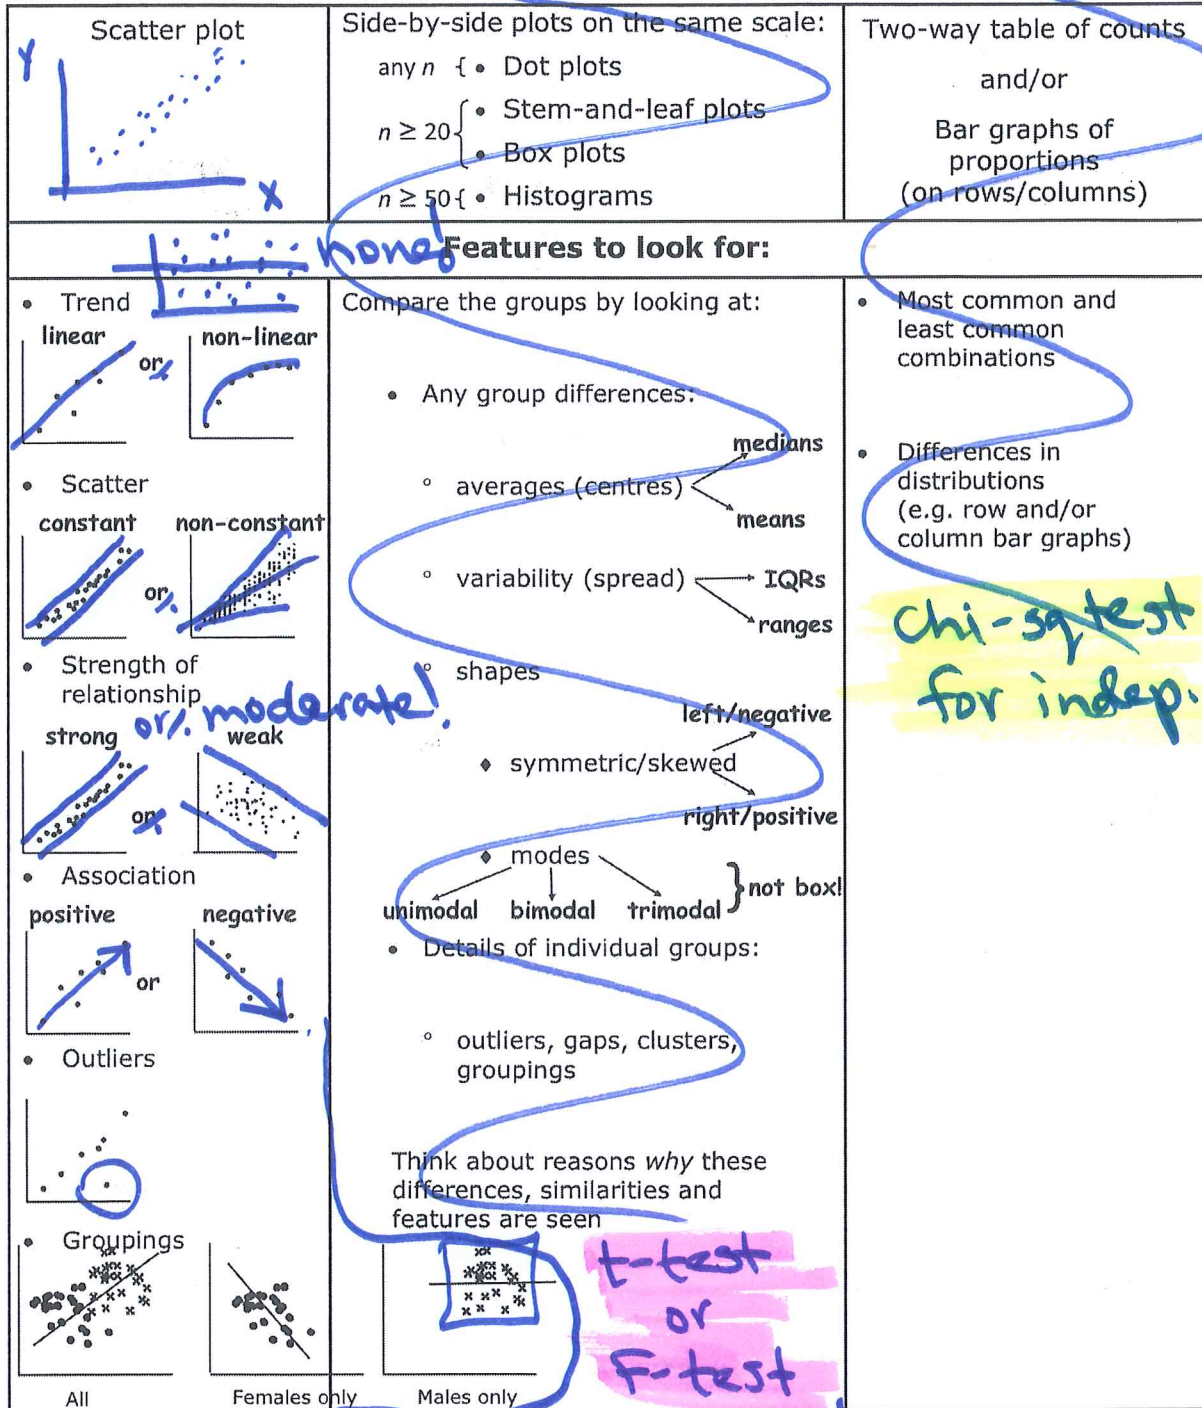 Scatter plot
Y
X
Side-by-side plots on the same scale:
any n { • Dot plots
n ≥ 20 { • Stem-and-leaf plots
• Box plots
n ≥ 50 { • Histograms
Two-way table of counts
and/or
Bar graphs of
proportions
(on rows/columns)
none!
Features to look for:
• Trend
linear or non-linear
• Scatter
constant or non-constant
• Strength of
relationship
or/. moderate!
strong or weak
• Association
positive or negative
• Outliers
• Groupings
All
Females only
Males only
Compare the groups by looking at:
• Any group differences:
medians
° averages (centres)
means
° variability (spread) IQRs
ranges
° shapes
left/negative
♦ symmetric/skewed
right/positive
♦ modes
unimodal bimodal trimodal } not box!
• Details of individual groups:
° outliers, gaps, clusters,
groupings
Think about reasons why these
differences, similarities and
features are seen
t-test
or
F-test
• Most common and
least common
combinations
• Differences in
distributions
(e.g. row and/or
column bar graphs)
Chi-sq test
for indep.